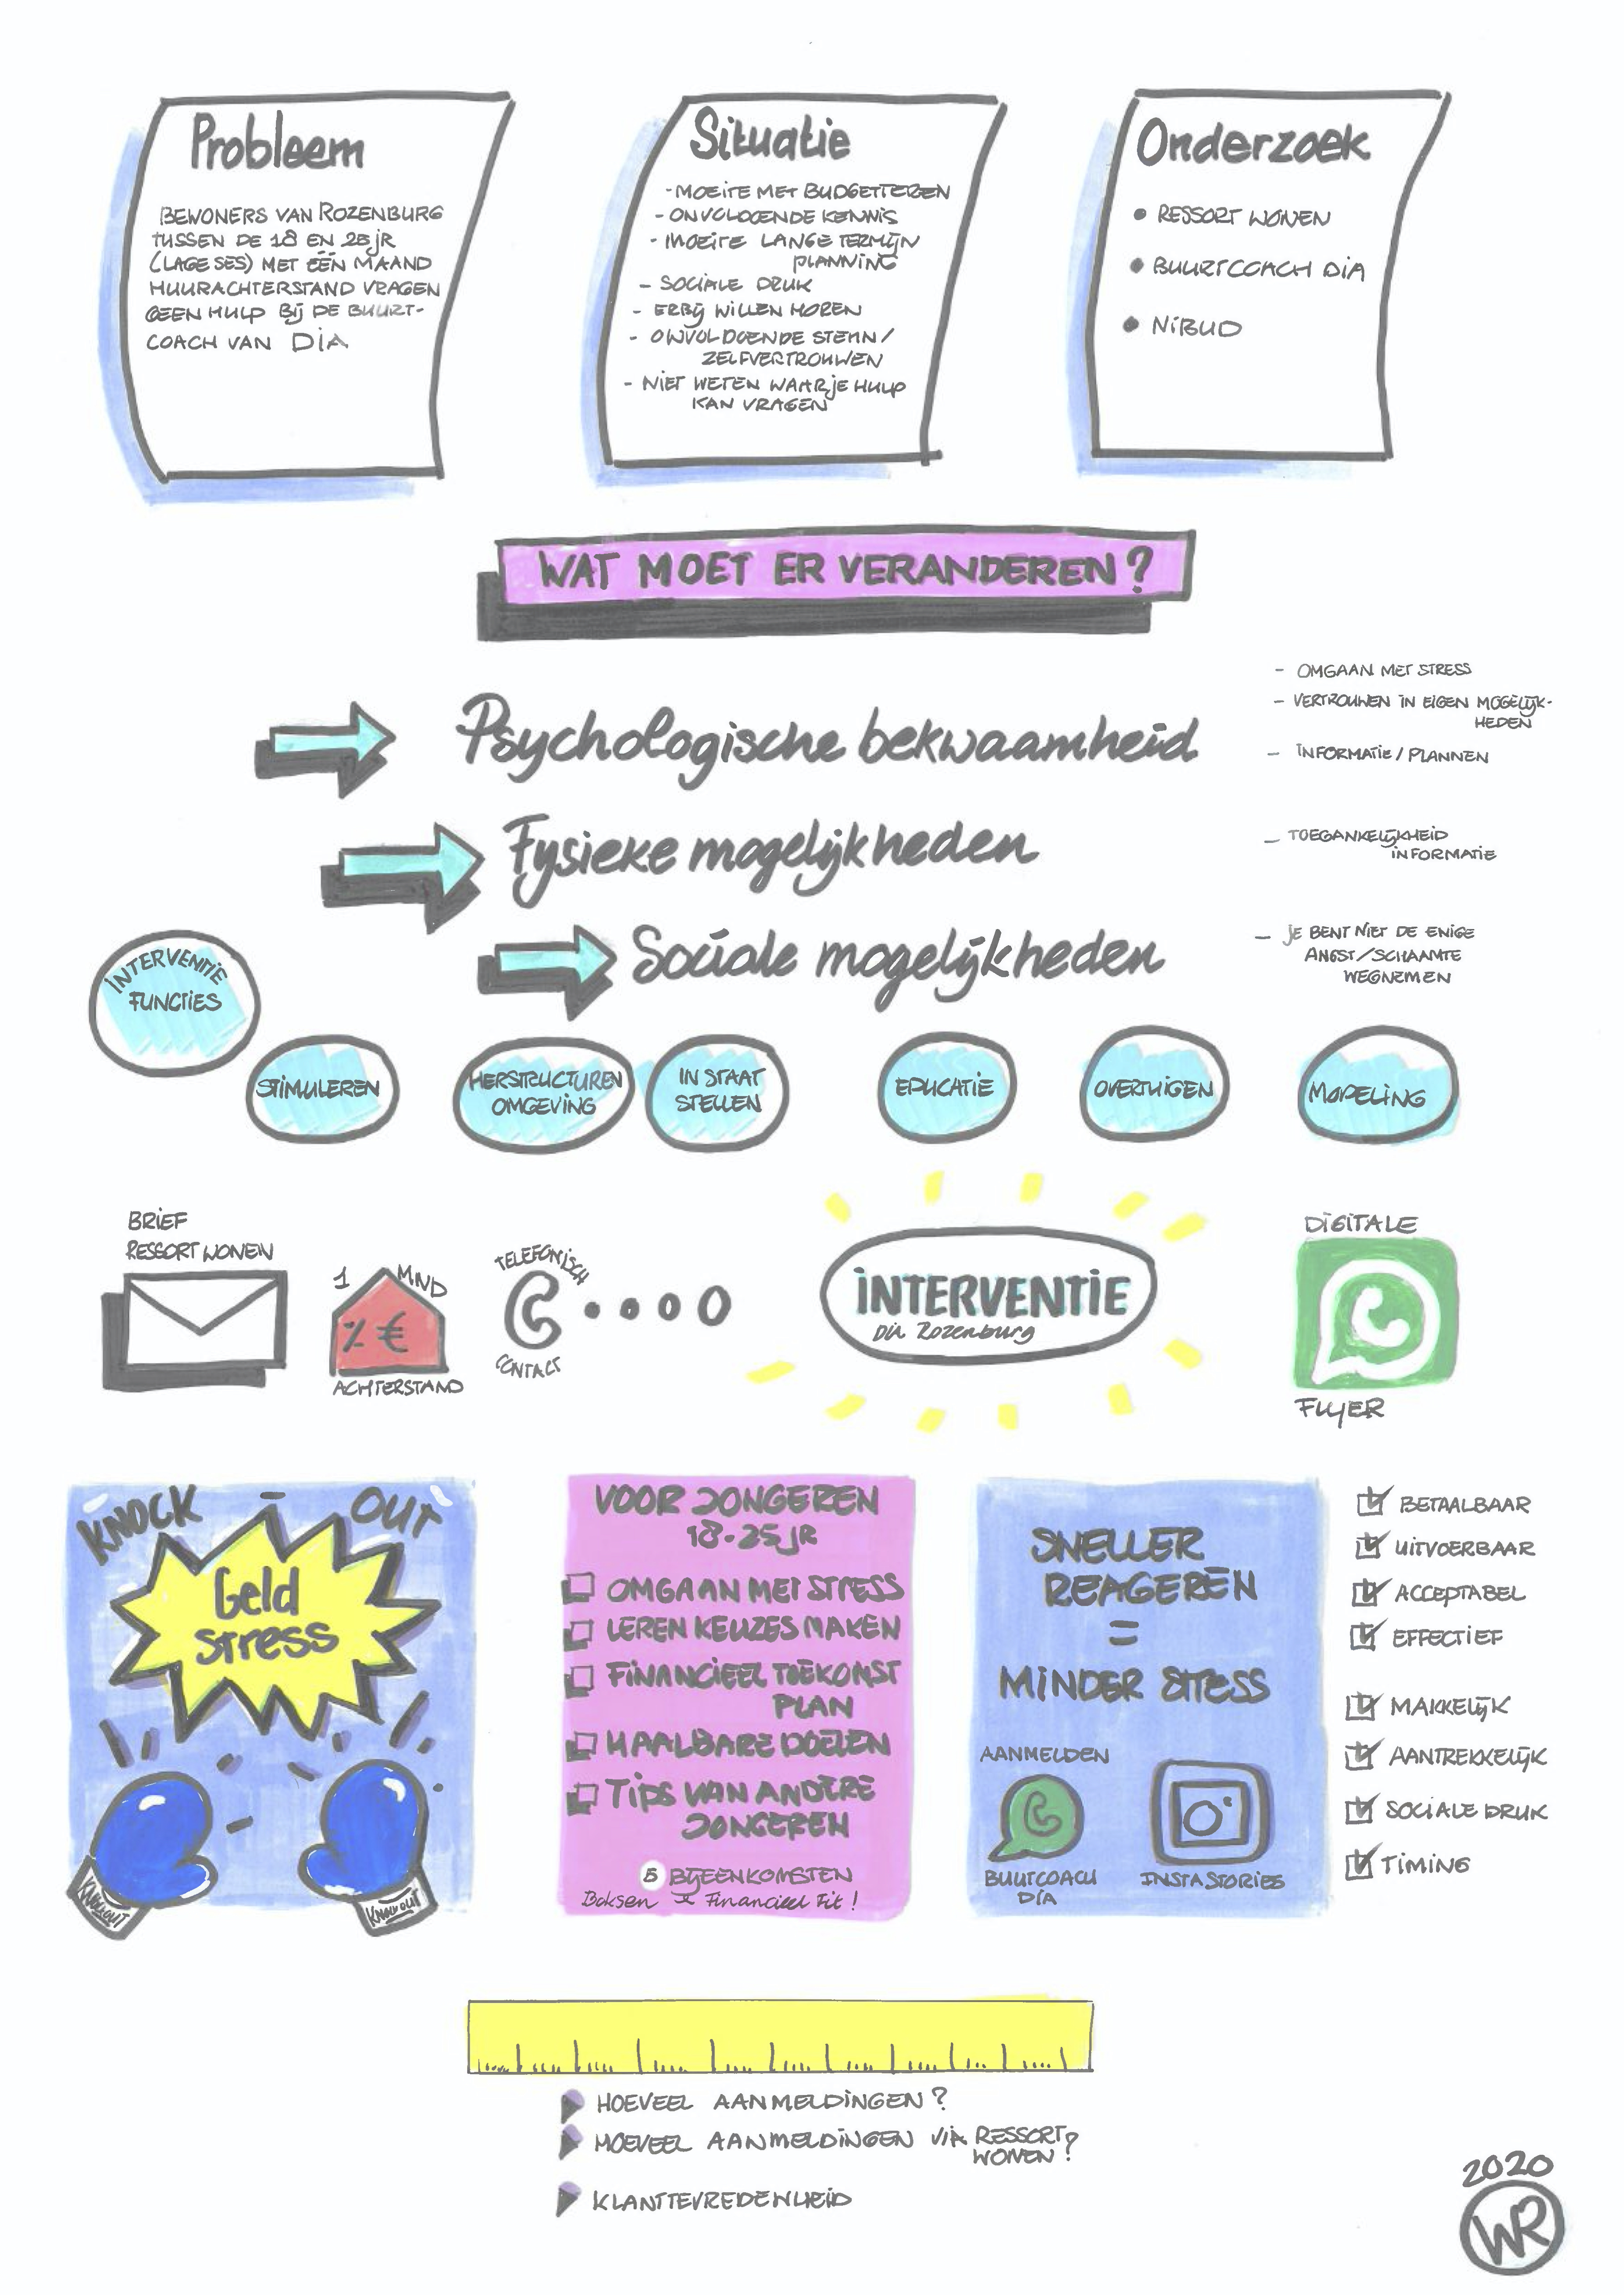 Probleem
BEWONERS VAN ROZENBURG
TUSSEN DE 18 EN 25 jR
(LAGE SES) MET ÉÉN MAAND
HUURACHTERSTAND VRAGEN
GEEN HULP Bij DE BUURT-
COACH VAN DiA
Situatie
- MOEiTE MET BUDGETTEREN
- ONVOLDOENDE KENNiS
- MOEiTE LANGE TERMijN
PLANNiNG
- SOCiALE DRUK
- ERBij WiLLEN HOREN
- ONVOLDOENDE STEUN /
ZELFVERTROUWEN
- NiET WETEN WAAR jE HULP
KAN VRAGEN
Onderzoek
• RESSORT WONEN
• BUURTCOACH DiA
• NiBUD
WAT MOET ER VERANDEREN?
Psychologische bekwaamheid
- OMGAAN MET STRESS
- VERTROUWEN iN EIGEN MOGELijK-
HEDEN
- iNFORMATiE / PLANNEN
Fysieke mogelijkheden
- TOEGANKELijKHEiD
iNFORMATiE
Sociale mogelijkheden
- jE BENT NiET DE ENiGE
ANGST/SCHAAMTE
WEGNEMEN
iNTERVENTiE
FUNCTiES
STiMULEREN
HERSTRUCTUREN
OMGEViNG
iN STAAT
STELLEN
EDUCATiE
OVERTUiGEN
MODELiNG
BRiEF
RESSORT WONEN
1 MND
% €
ACHTERSTAND
TELEFONiSCH
CONTACT
iNTERVENTiE
Dia Rozenburg
DiGiTALE
FLyER
KNOCK - OUT
Geld
stress
KNOCKOUT
KNOCKOUT
VOOR JONGEREN
18-25 jR
OMGAAN MET STRESS
LEREN KEUZES MAKEN
FiNANCiEEL TOEKOMST
PLAN
HAALBARE DOELEN
TiPS VAN ANDERE
JONGEREN
5 BijEENKOMSTEN
Boksen & Financieel Fit!
SNELLER
REAGEREN
=
MiNDER STRESS
AANMELDEN
BUUTCOACH
DiA
iNSTA STORiES
BETAALBAAR
UiTVOERBAAR
ACCEPTABEL
EFFECTiEF
MAKKELijK
AANTREKKELijK
SOCiALE DRUK
TiMiNG
HOEVEEL AANMELDiNGEN?
HOEVEEL AANMELDiNGEN ViA RESSORT
WONEN?
KLANTTEVREDENHEiD
2020
WR